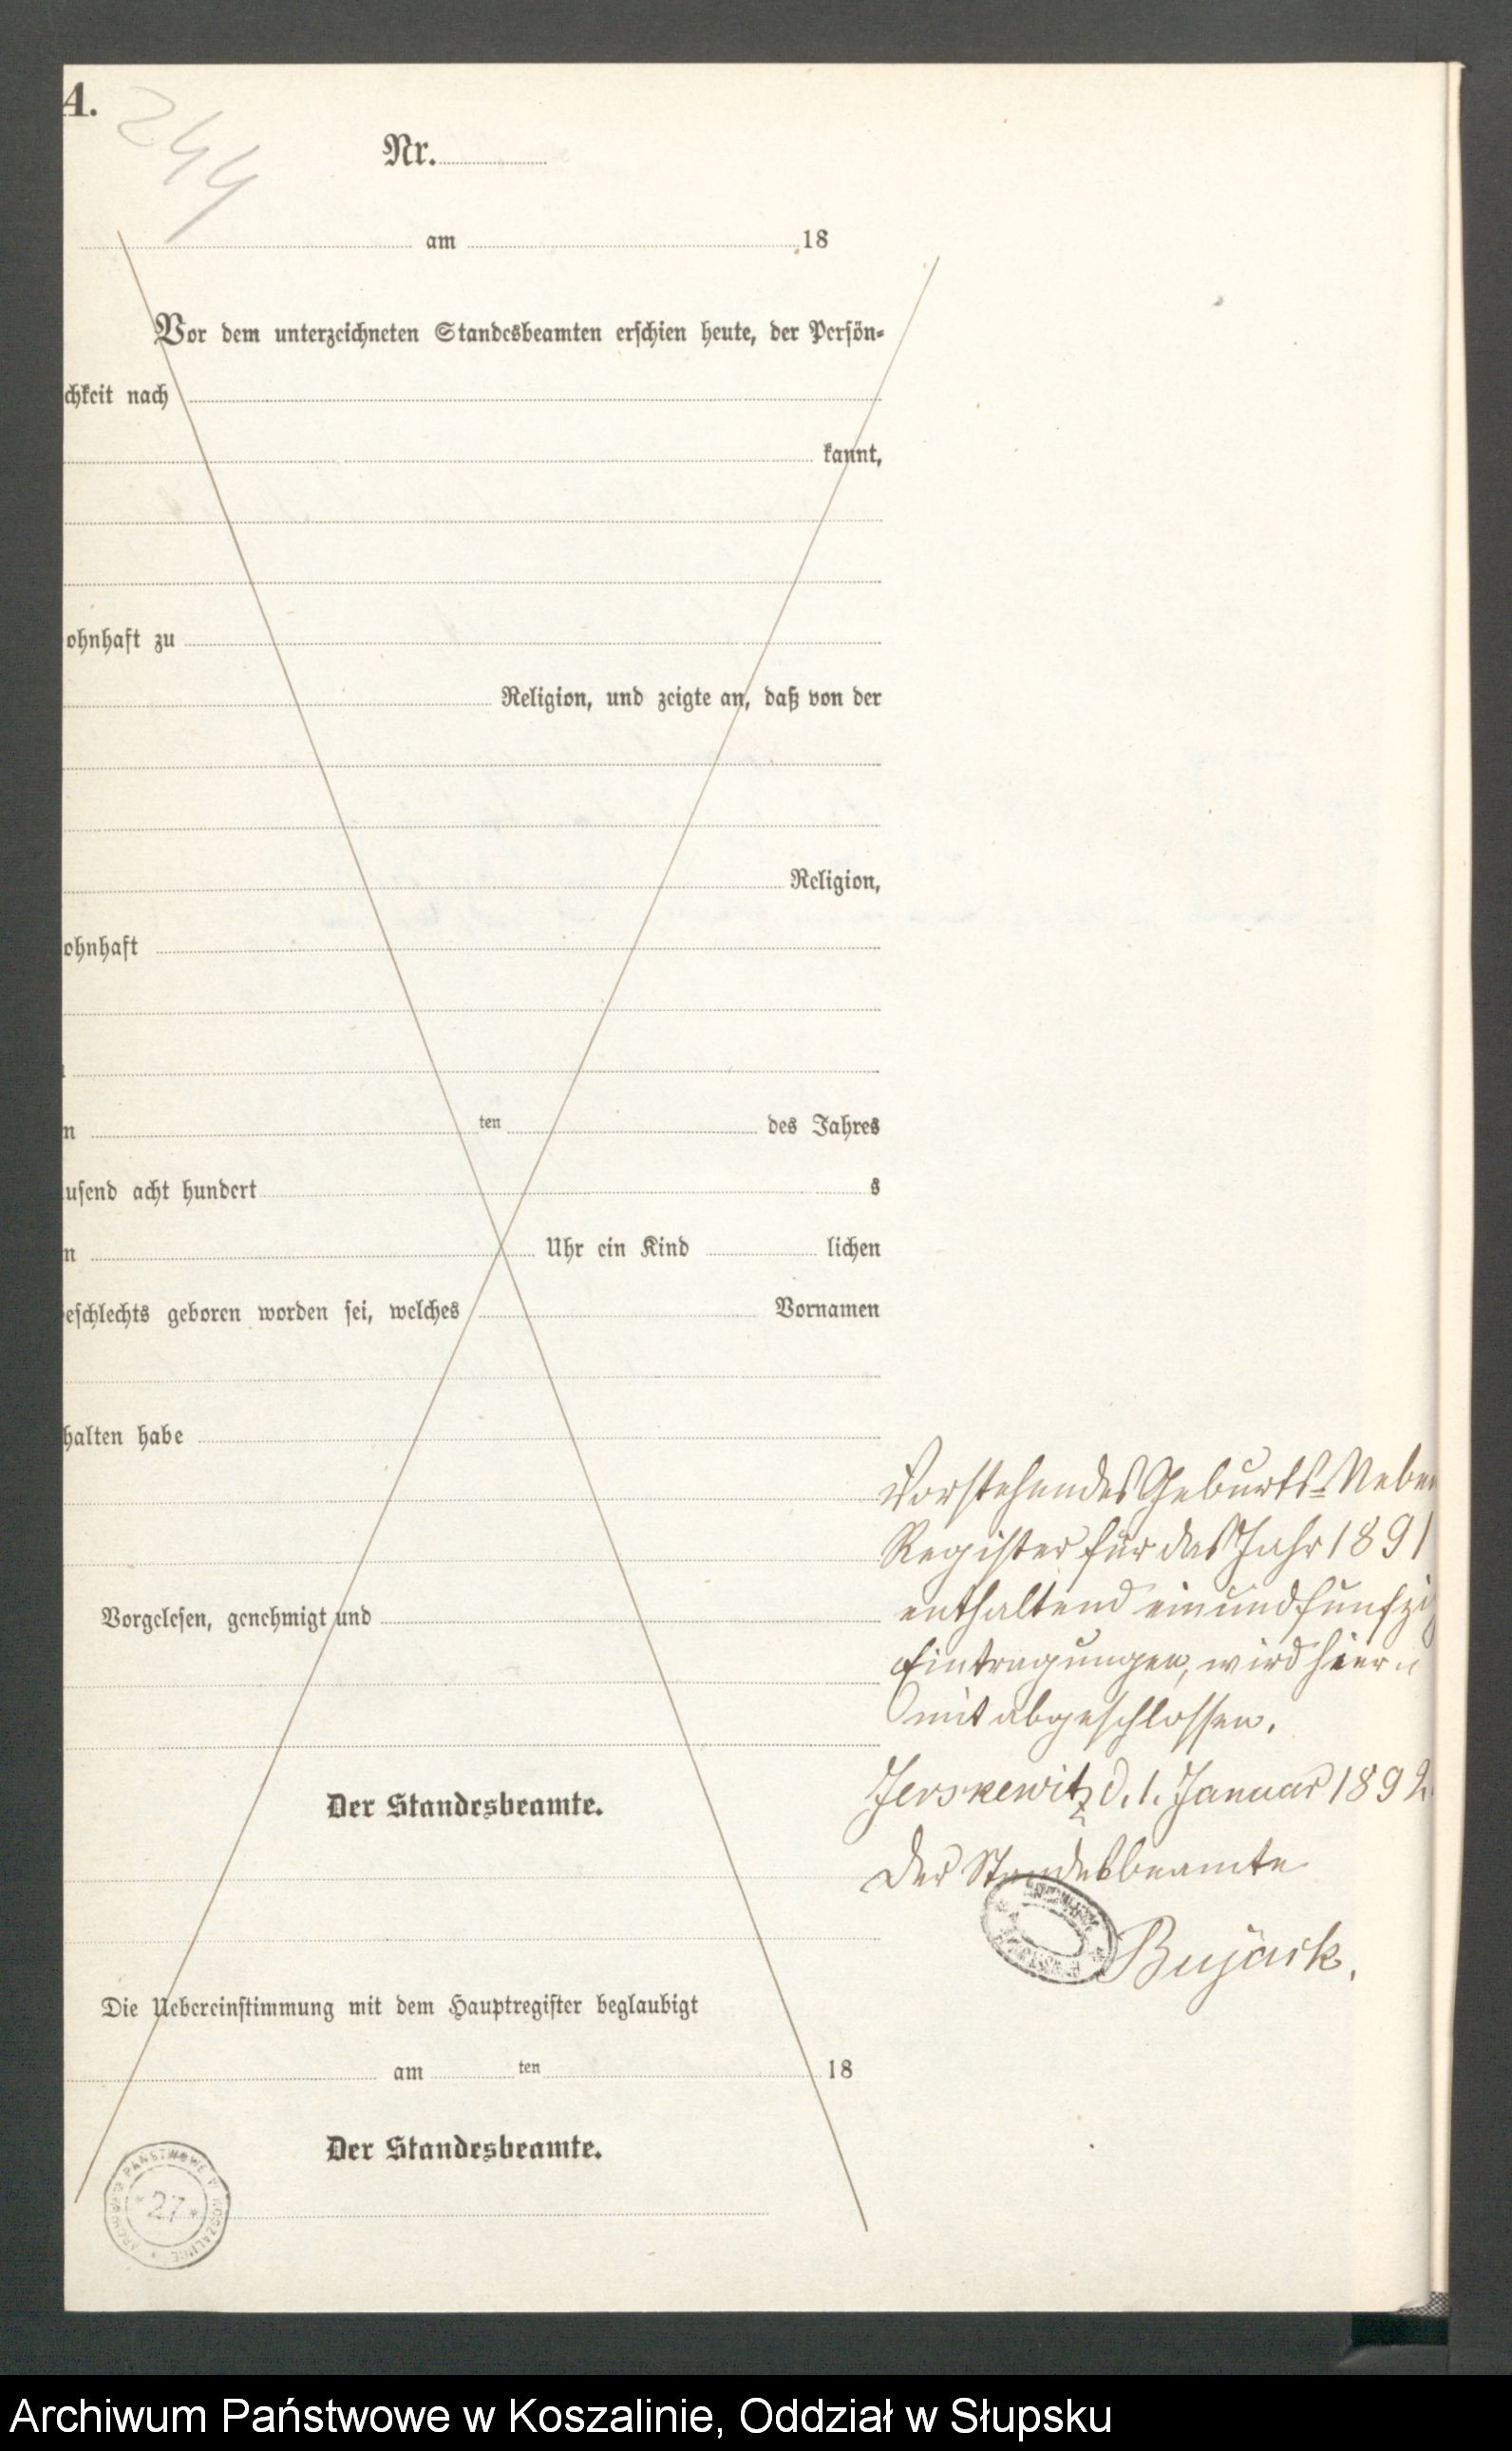 A.
244
Nr.
am 18
Vor dem unterzeichneten Standesbeamten erschien heute, der Persön-
chkeit nach
kannt,
ohnhaft zu
Religion, und zeigte an, daß von der
Religion,
ohnhaft
n ten des Jahres
usend acht hundert s
n Uhr ein Kind lichen
eschlechts geboren worden sei, welches Vornamen
halten habe
Vorgelesen, genehmigt und
Der Standesbeamte.
Die Uebereinstimmung mit dem Hauptregister beglaubigt
am ten 18
Der Standesbeamte.
Vorstehendes Geburts-Neben
Register für das Jahr 1891
enthaltend einundfünfzig
Eintragungen, wird hier-
mit abgeschlossen.
Jerskewitz d. 1. Januar 1892.
Der Standesbeamte
Bujack.
ARCHIWUM PAŃSTWOWE W KOSZALINIE
*27*
Archiwum Państwowe w Koszalinie, Oddział w Słupsku